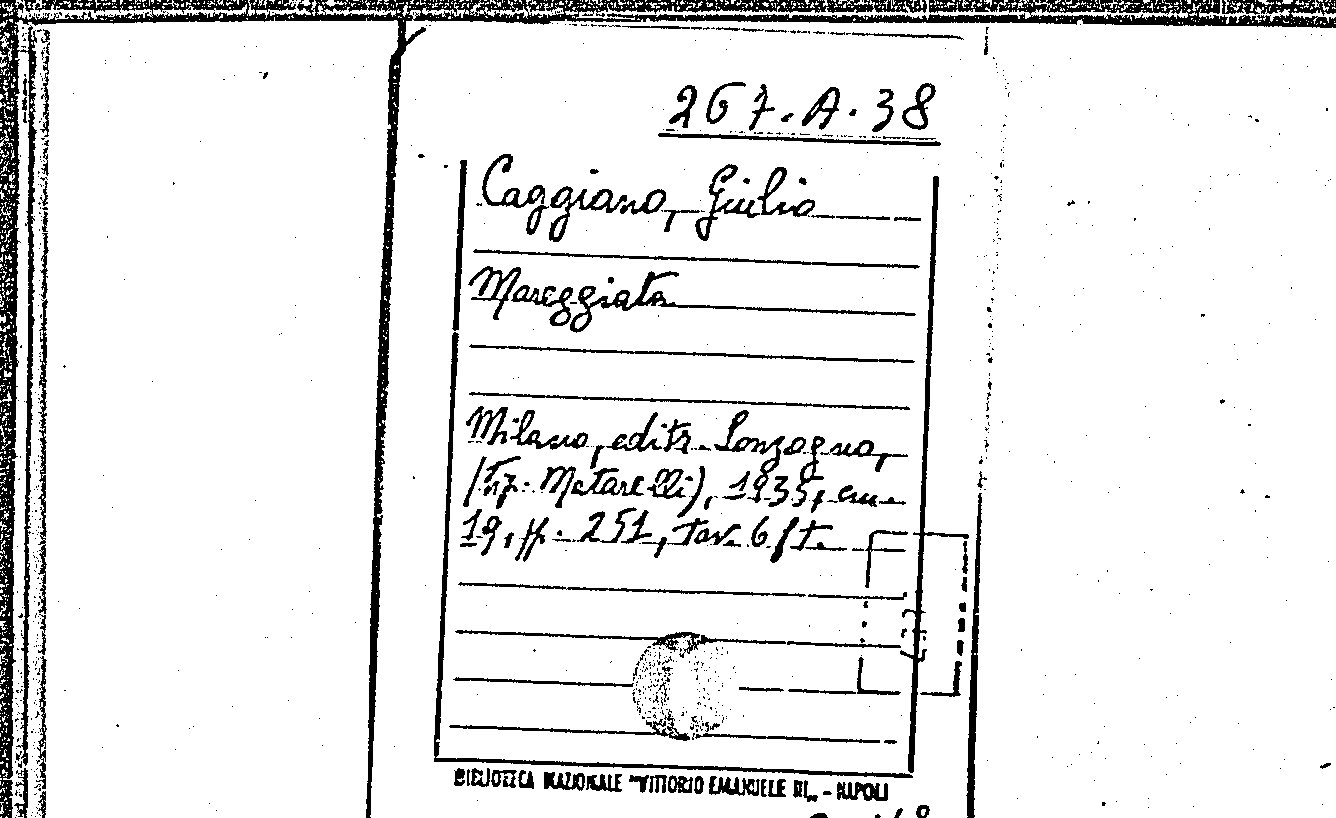 267.A.38
Caggiano, Giulio
Mareggiata
Milano, editr. Sonzogno,
(Tip. Matarelli), 1935, cm.
19, pp. 251, tav. 6 f.t.
BIBLIOTECA NAZIONALE "VITTORIO EMANUELE III„ - NAPOLI